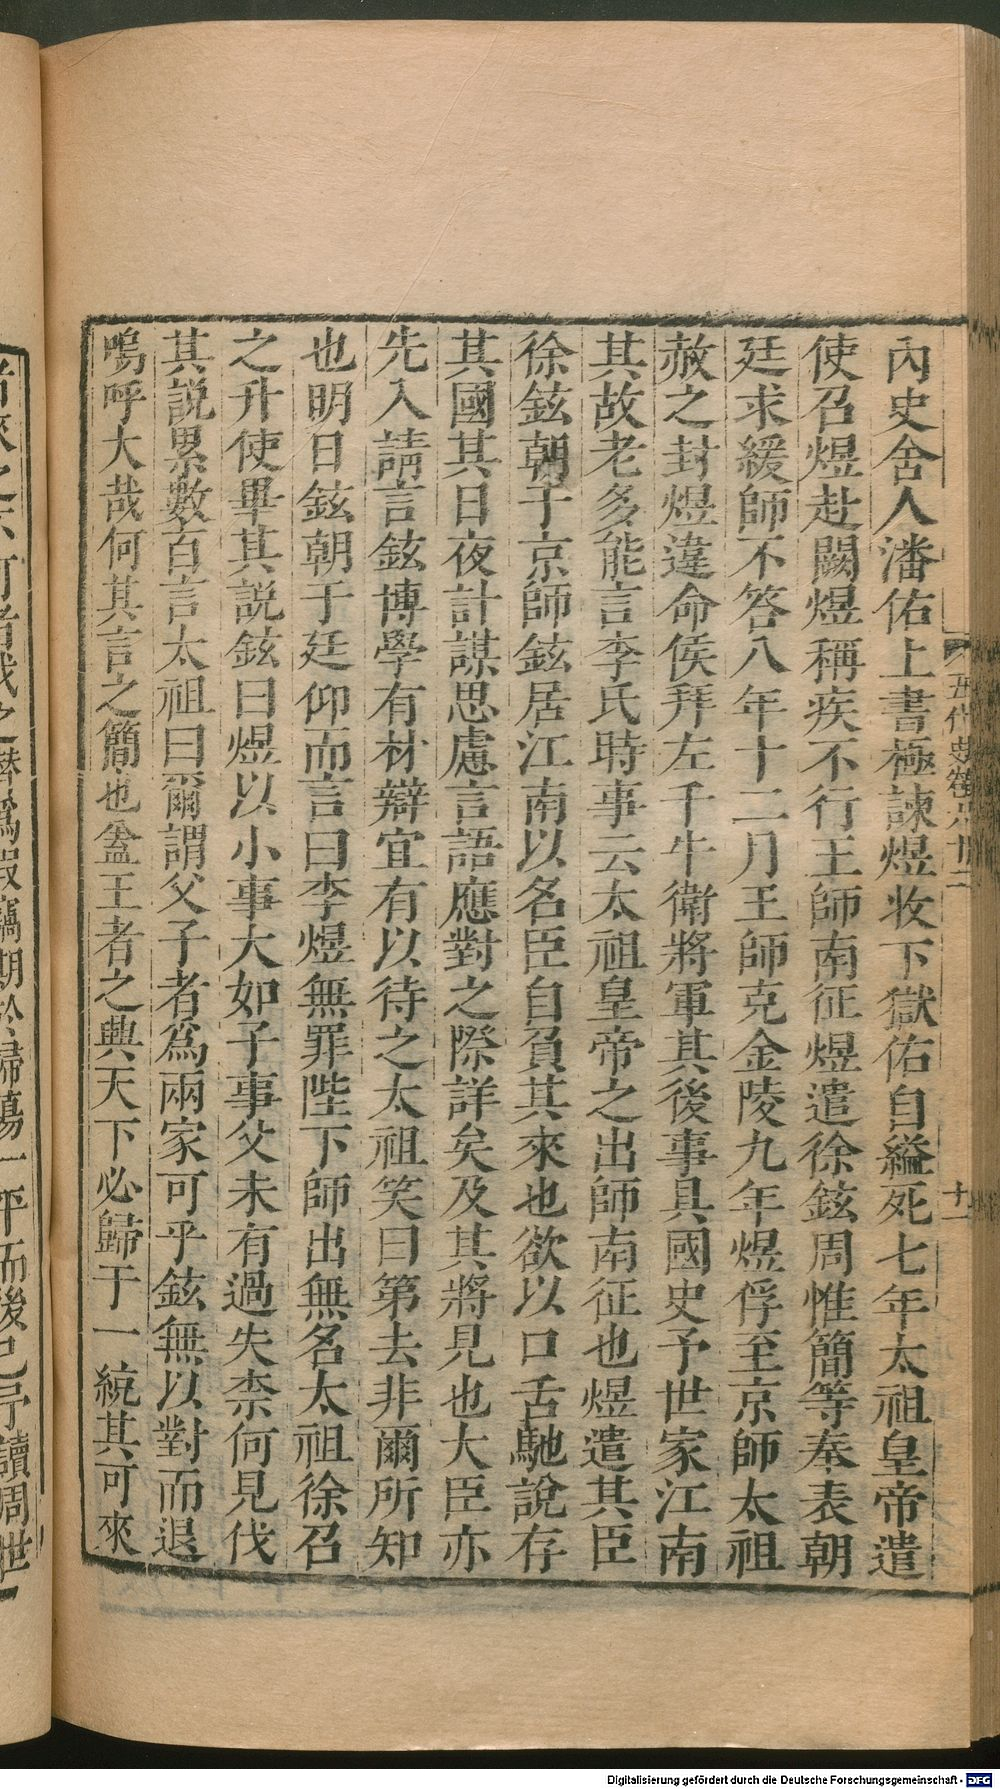 內史舍人潘佑上書極諫煜收下獄佑自縊死七年太祖皇帝遣
使召煜赴闕煜稱疾不行王師南征煜遣徐鉉周惟簡等奉表朝
廷求緩師不答八年十二月王師克金陵九年煜俘至京師太祖
赦之封煜違命侯拜左千牛衛將軍其後事具國史予世家江南
其故老多能言李氏時事云太祖皇帝之出師南征也煜遣其臣
徐鉉朝于京師鉉居江南以名臣自負其來也欲以口舌馳說存
其國其日夜計謀思慮言語應對之際詳矣及其將見也大臣亦
先入請言鉉博學有材辯宜有以待之太祖笑曰第去非爾所知
也明日鉉朝于廷仰而言曰李煜無罪陛下師出無名太祖徐召
之升使畢其說鉉曰煜以小事大如子事父未有過失柰何見伐
其說累數百言太祖曰爾謂父子者為兩家可乎鉉無以對而退
嗚呼大哉何其言之簡也蓋王者之興天下必歸于一統其可來
者來之不可者伐之僭為假竊期於掃蕩一平而後已予讀周世
五代史卷六十二
十一
Digitalisierung gefördert durch die Deutsche Forschungsgemeinschaft - DFG